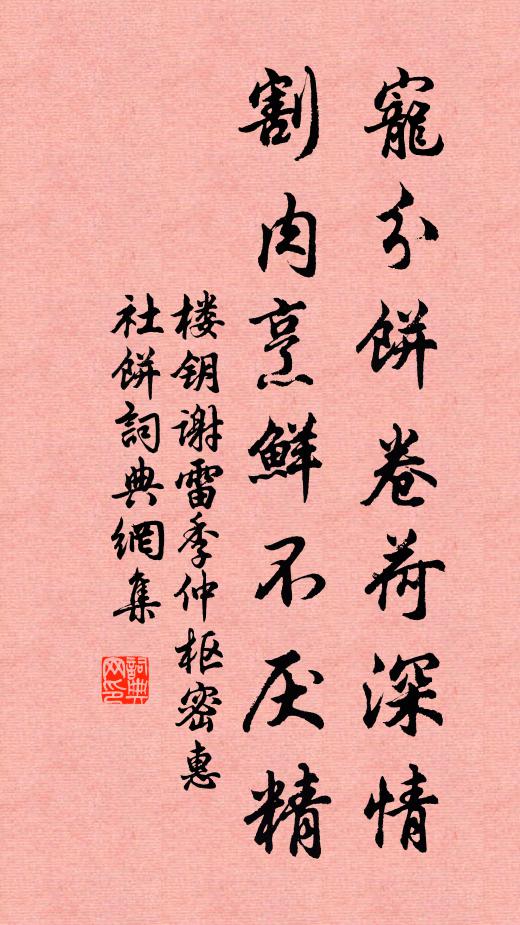 寵分餅卷荷深情
割肉烹鮮不厌精
楼钥谢雷季仲枢密惠
社餅詞典網集
詞典
网印